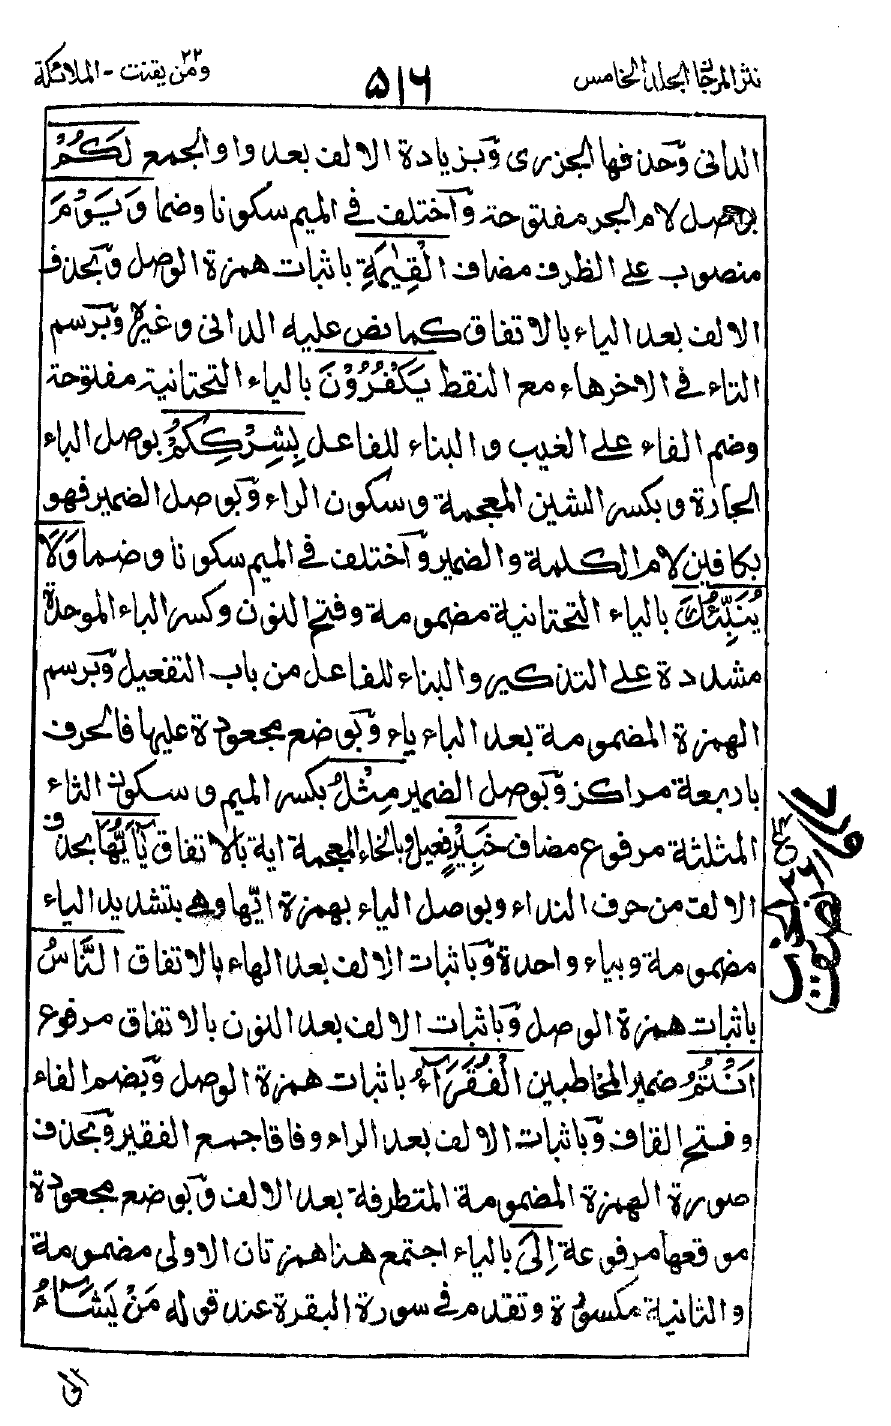 نثر المرجان الجلد الخامس
٥١٦
ومن يقنت ٢٢ - الملائكة
الدانى وحذفها الجزرى وبزيادة الالف بعد واو الجمع لَكُمْ
بوصل لام الجر مفتوحة واختلف فى الميم سكونا وضما وَيَوْمَ
منصوب على الظرف مضاف الْقِيٰمَةِ باثبات همزة الوصل وبحذف
الالف بعد الياء بالاتفاق كما نص عليه الدانى وغيره وبرسم
التاء فى الاخر هاء مع النقط يَكْفُرُوْنَ بالياء التحتانية مفتوحة
وضم الفاء على الغيب والبناء للفاعل بِشِرْكِكُمْ بوصل الباء
الجارة وبكسر الشين المعجمة وسكون الراء وبوصل الضمير فهو
بكافين لام الكلمة والضمير واختلف فى الميم سكونا وضما وَلَا
يُنَبِّئُكَ بالياء التحتانية مضمومة وفتح النون وكسر الباء الموحدة
مشددة على التذكير والبناء للفاعل من باب التفعيل وبرسم
الهمزة المضمومة بعد الباء ياء وبوضع مجعودة عليها فالحرف
باربعة مراكز وبوصل الضمير مِثْلُ بكسر الميم وسكون الثاء
المثلثة مرفوع مضاف خَبِيْرٍ فعيل وبالخاء المعجمة اية بالاتفاق يٰاَيُّهَا بحذف
الالف من حرف النداء وبوصل الياء بهمزة ايّها وهى بتشديد الياء
مضمومة وبياء واحدة وباثبات الالف بعد الهاء بالاتفاق النَّاسُ
باثبات همزة الوصل وباثبات الالف بعد النون بالاتفاق مرفوع
اَنْتُمُ ضمير المخاطبين الْفُقَرَآءُ باثبات همزة الوصل وبضم الفاء
وفتح القاف وباثبات الالف بعد الراء وفاقا جمع الفقير وبحذف
صورة الهمزة المضمومة المتطرفة بعد الالف وبوضع مجعودة
موقعها مرفوعة اِلَى بالياء اجتمع هنا همزتان الاولى مضمومة
والثانية مكسورة وتقدم فى سورة البقرة عند قوله مَنْ يَشَآءُ
الى